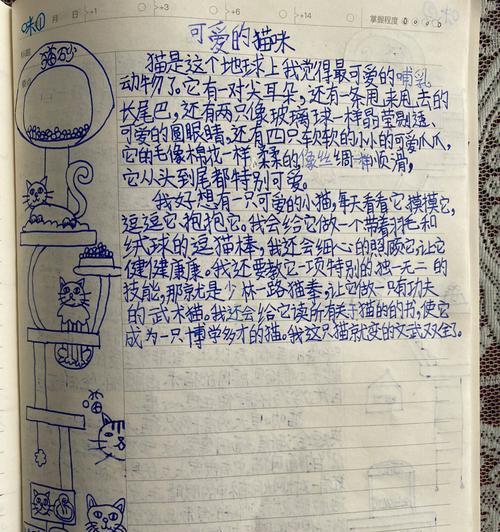 咪① 月 日 +1 +3 +6 +14 掌握程度
可爱的猫咪
猫砂
猫是这个地球上我觉得最可爱的哺乳
动物了。它有一对尖耳朵,还有一条甩来甩去的
长尾巴,还有两只像玻璃球一样晶莹剔透、
可爱的圆眼睛,还有四只软软的小小的可爱爪爪,
它的毛像棉花一样柔柔的像丝绸一样顺滑,
它从头到尾都特别可爱。
我好想有一只可爱的小猫,每天看看它,摸摸它,
逗逗它,抱抱它。我会给它做一个带着羽毛和
绒球的逗猫棒,我还会细心的照顾它,让它
健健康康。我还要教它一项特别的独一无二的
技能,那就是少林一路猫拳,让它做一只有功夫
的武术猫。我还会给它读所有关于猫的的书,使它
成为一只博学多才的猫。我这只猫就变的文武双全了。